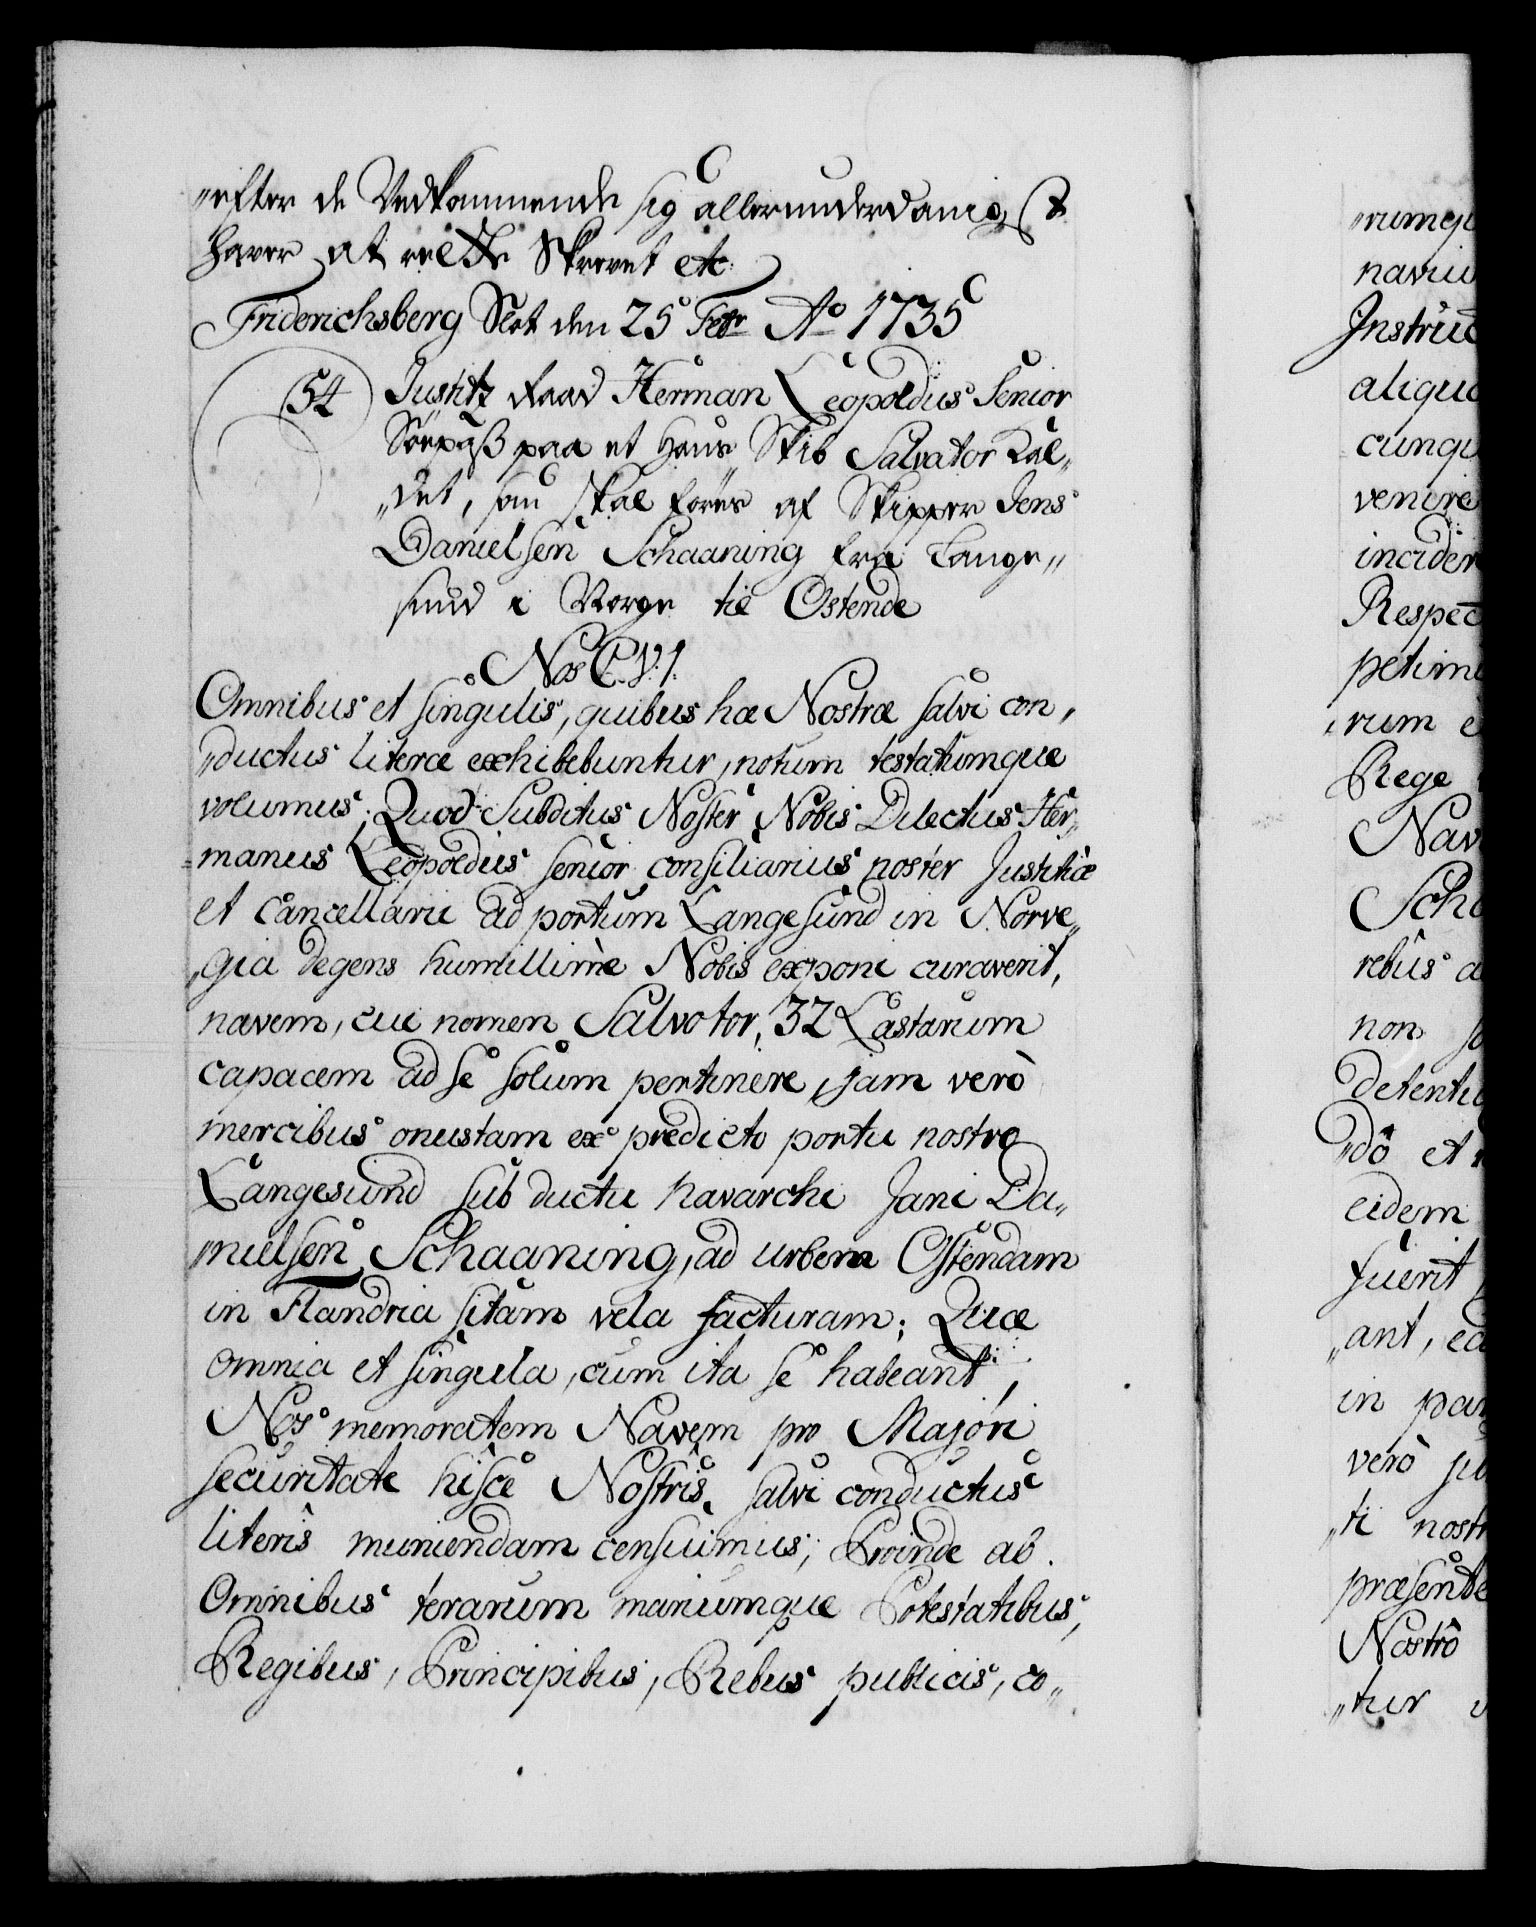 „efter de Vedkommende sig allerunderdanigst
haver at rette Skrevet etc
Friderichsberg Slot den 25 Febr Ao 1735
54 Justitz Raad Herman Leopoldus Senior
Söepass paa et hans Skib Salvator kal„
„det, som skal föres af Skipper Jens
Danielsen Schaaning fra Lange„
sund i Norge til Ostende
Nos C.VI.
Omnibus et singulis, quibus hæ Nostræ salvi con„
„ductus literæ exhibebuntur, notum testatumque
volumus; Quod Subditus Noster Nobis Dilectus Her„
„manus Leopoldus senior consiliarius noster Justitiæ
et Cancellarii ad portum Langesund in Norve„
„gia degens humillimè Nobis exponi curaverit,
navem, cui nomen Salvator, 32 Lastarum
capacem ad se solum pertinere, jam verò
mercibus onustam ex predicto portu nostro
Langesund sub ductu navarchi Jani Da„
„nielsen Schaaning, ad urbem Ostendam
in Flandria sitam vela facturam; Quæ
omnia et singula, cum ita se habeant,
Nos memoratem Navem pro Majori
securitate hisce Nostris salvi conductus
literis muniendam censuimus; Proinde ab
Omnibus terarum mariumque Potestatibus,
Regibus, Principibus, Rebus publicis, co„